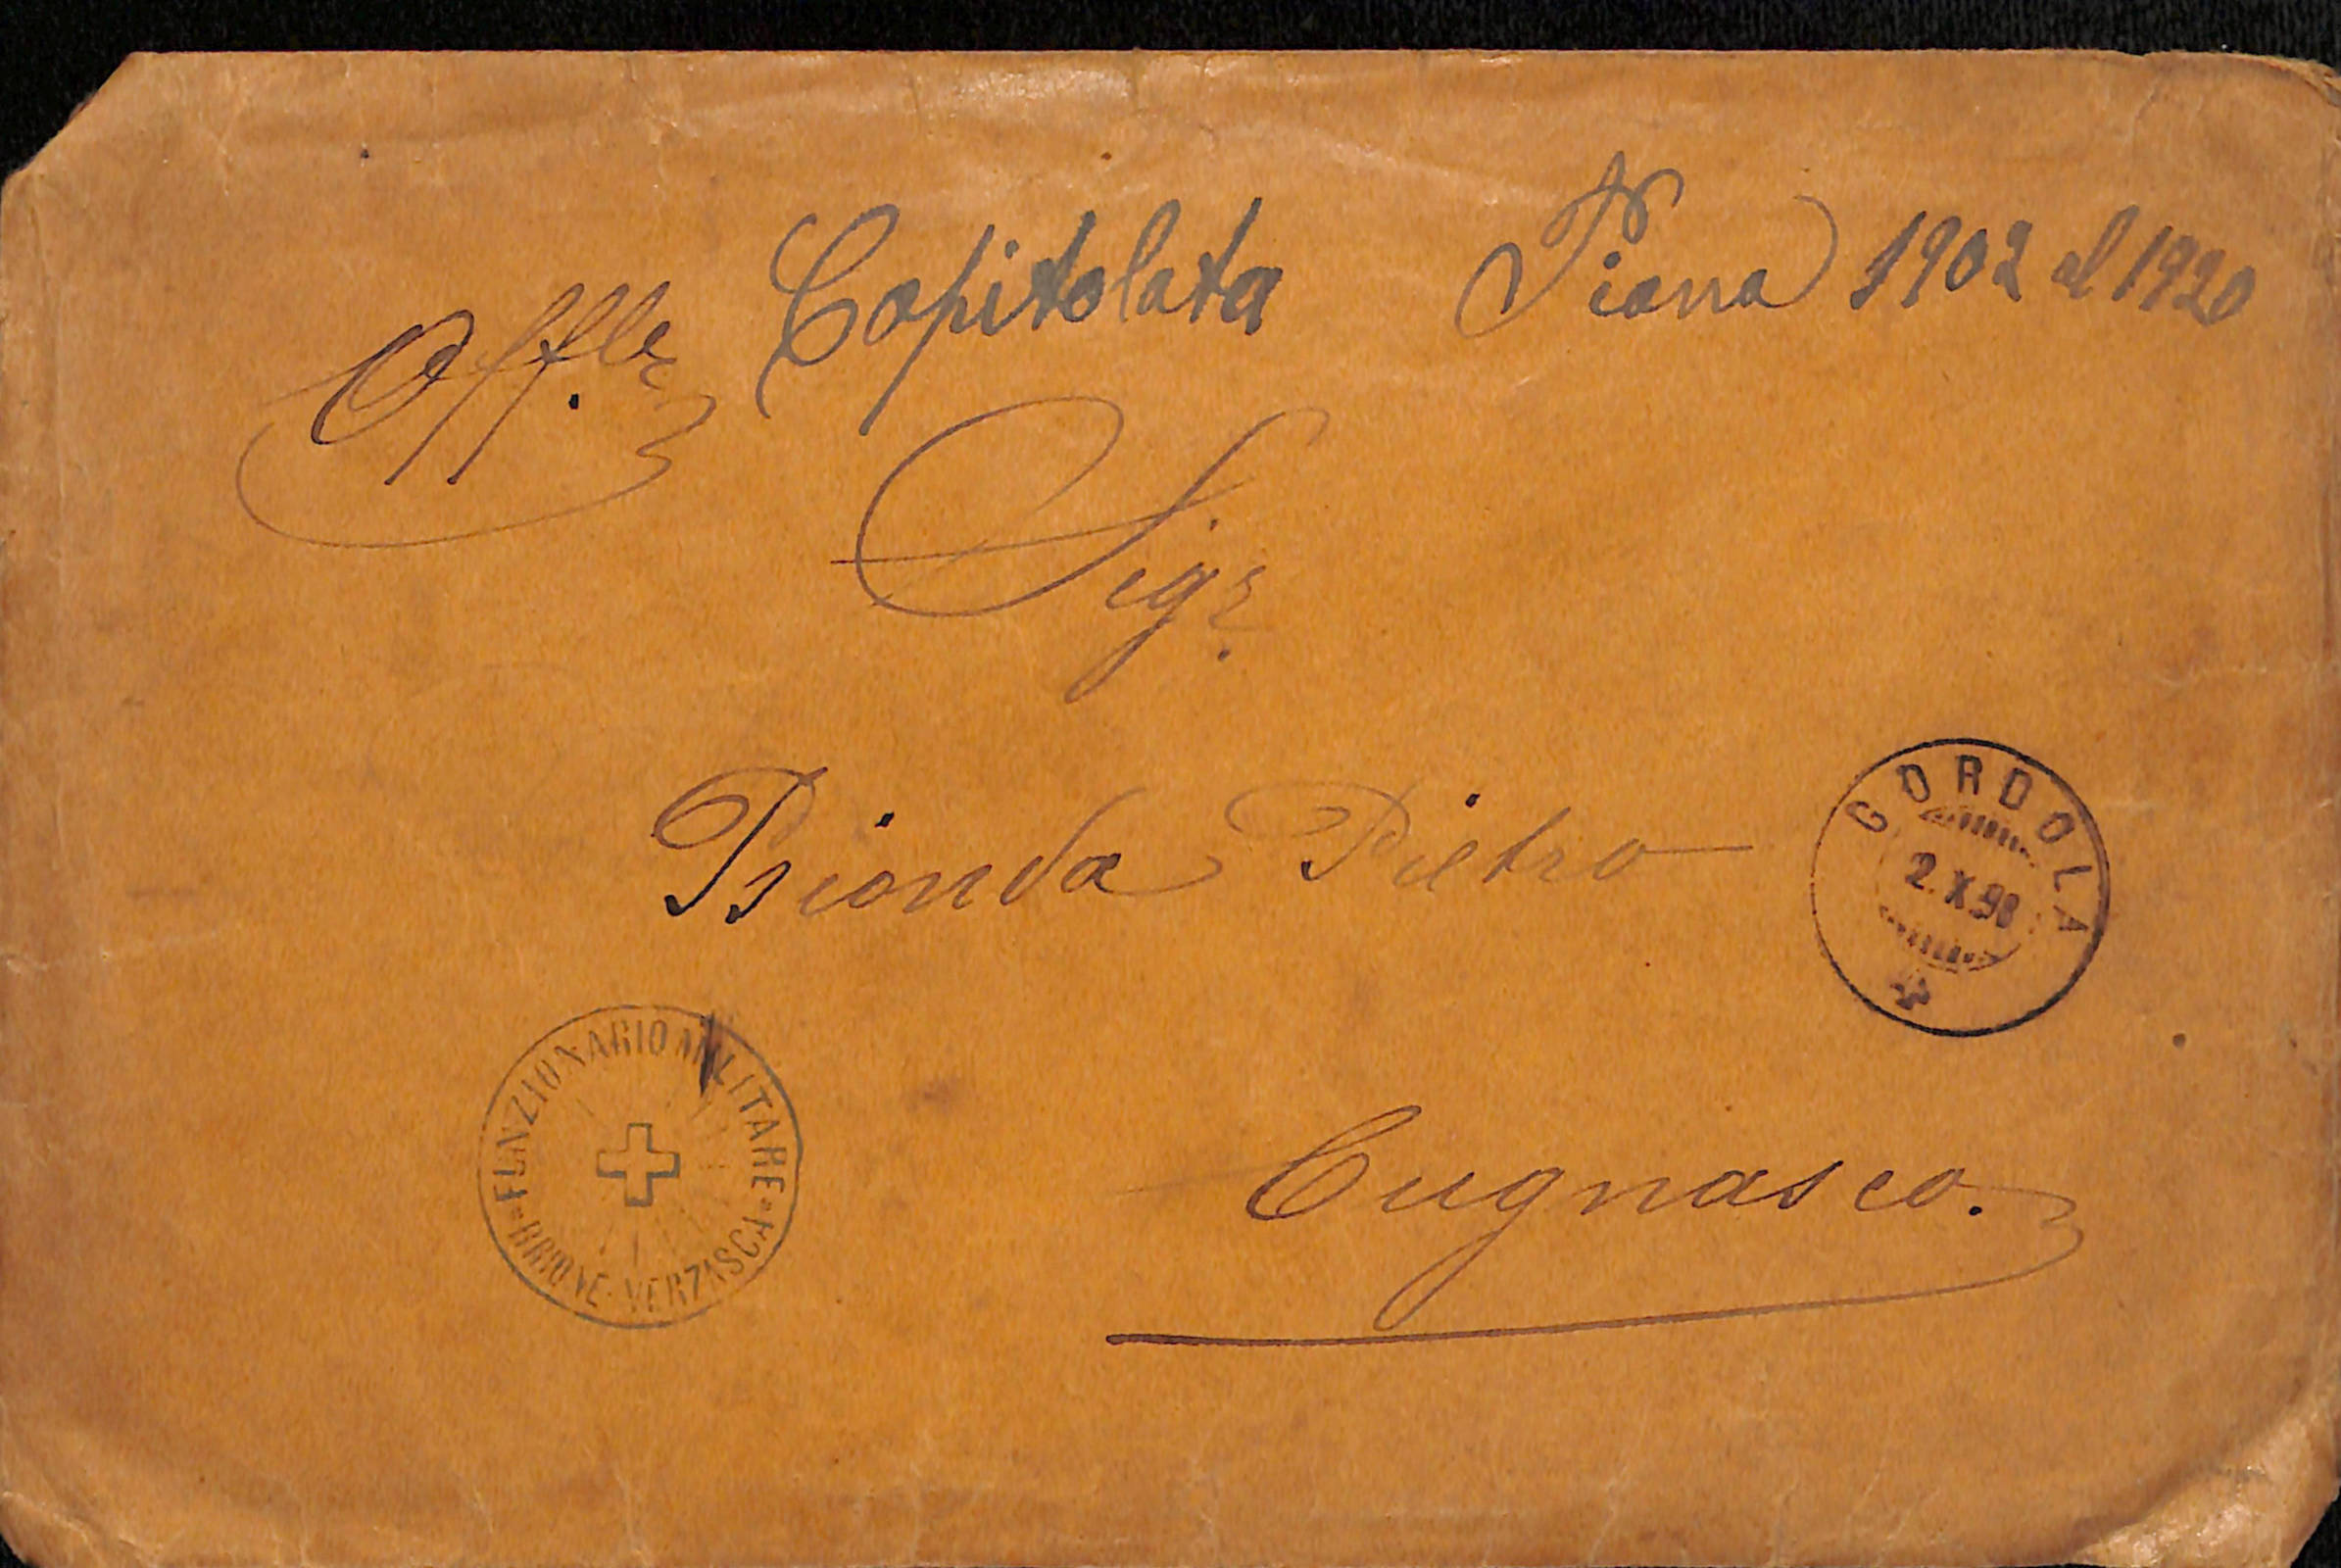 Capitolata Piana 1902 al 1920
Offle
Sigr.
Bionda Pietro
GORDOLA
2.X.98
FUNZIONARIO MILITARE
BRIONE-VERZASCA
Cugnasco.